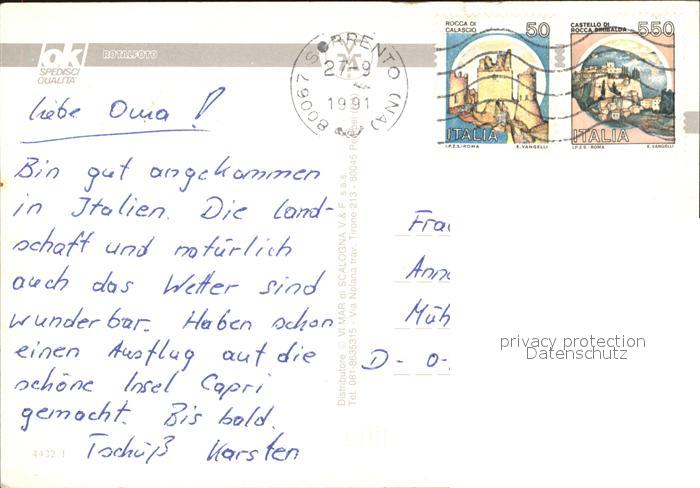 ok ROTALFOTO
SPEDISCI
QUALITA'
80067 SORRENTO (NA)
27-9
1991
ROCCA DI
CALASCIO
50
ITALIA
I.P.Z.S.-ROMA E. VANGELLI
CASTELLO DI
ROCCA SINIBALDA
550
ITALIA
I.P.Z.S.-ROMA E. VANGELLI
liebe Oma!
Bin gut angekommen
in Italien. Die land-
schaft und natürlich
auch das Wetter sind
wunderbar. Haben schon
einen Ausflug auf die
schöne Insel Capri
gemacht. Bis bald.
Tschüß Karsten
4432
Distributore © VI MAR di SCALOGNA V. & F. s.a.s.
Tel. 081-8635315 - Via Nolana trav. Tirone 213 - 80045
Frau
Anne
Müh
D - 0-
privacy protection
Datenschutz